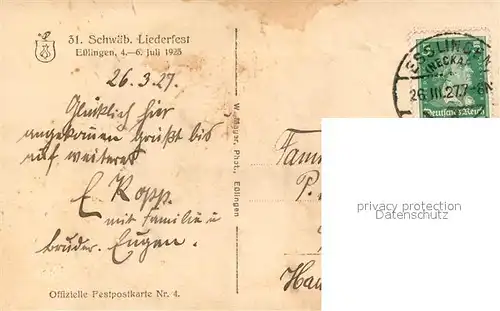 31. Schwäb. Liederfest
Eßlingen, 4.–6. Juli 1925
ESSLINGEN
(NECKAR)
26.III.27.7-8N.
Deutsches Reich
26.3.27.
Glücklich hier
angekommen Grüßt bis
auf weiteres
E Kopp.
mit Familie u
bruder. Eugen.
W. Mayer, Phot., Eßlingen
Offizielle Festpostkarte Nr. 4.
Fam
P.
Ha
privacy protection
www.oldthing.de